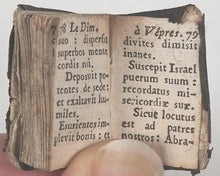 78 Le Dim.
suo : dispersit
superbos mente
cordis sui.
Deposuit po-
tentes de sede :
et exaltavit hu-
miles.
Esurientes im-
plevit bonis : et
à Vêpres. 79
divites dimisit
inanes.
Suscepit Israel
puerum suum :
recordatus mi-
sericordiæ suæ.
Sicut locutus
est ad patres
nostros : Abra-